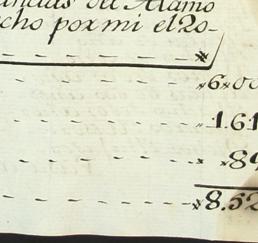 del Alamo
cho por mi el 20-
6.00
1.61
89
8.52